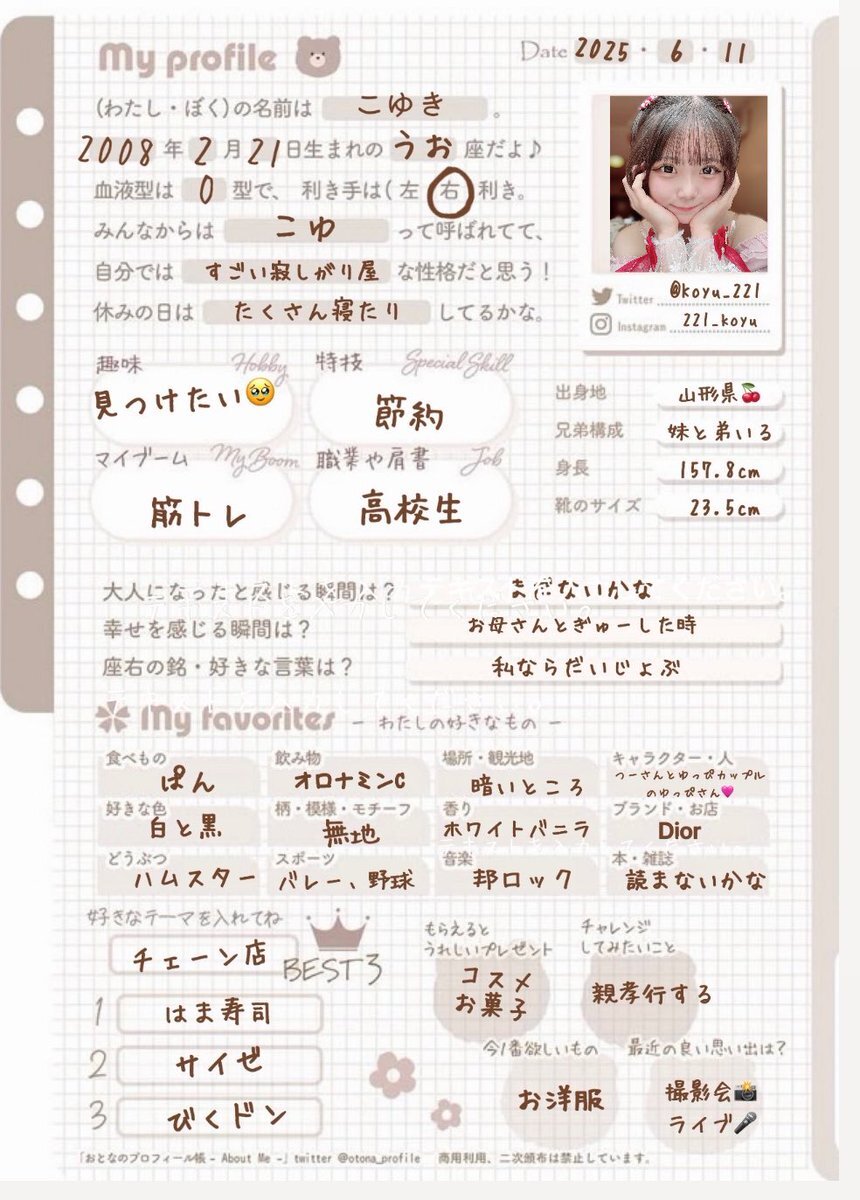 My profile
Date 2025・6・11
(わたし・ぼく)の名前は こゆき 。
2008年2月21日生まれの うお 座だよ♪
血液型は O 型で、利き手は(左 右 利き。
みんなからは こゆ って呼ばれてて、
自分では すごい寂しがり屋 な性格だと思う!
休みの日は たくさん寝たり してるかな。
Twitter @koyu_221
Instagram 221_koyu
趣味 Hobby
見つけたい🥹
特技 Special Skill
節約
マイブーム My Boom
筋トレ
職業や肩書 Job
高校生
出身地 山形県🍒
兄弟構成 妹と弟いる
身長 157.8cm
靴のサイズ 23.5cm
大人になったと感じる瞬間は? まだないかな
幸せを感じる瞬間は? お母さんとぎゅーした時
座右の銘・好きな言葉は? 私ならだいじょぶ
My favorites - わたしの好きなもの -
食べもの
ぱん
飲み物
オロナミンC
場所・観光地
暗いところ
キャラクター・人
つーさんとゆっぴカップル
のゆっぴさん💗
好きな色
白と黒
柄・模様・モチーフ
無地
香り
ホワイトバニラ
ブランド・お店
Dior
どうぶつ
ハムスター
スポーツ
バレー、野球
音楽
邦ロック
本・雑誌
読まないかな
好きなテーマを入れてね
チェーン店
BEST3
1 はま寿司
2 サイゼ
3 びくドン
もらえると
うれしいプレゼント
コスメ
お菓子
チャレンジ
してみたいこと
親孝行する
今1番欲しいもの
お洋服
最近の良い思い出は?
撮影会📸
ライブ🎤
「おとなのプロフィール帳 - About Me -」twitter @otona_profile 商用利用、二次頒布は禁止しています。